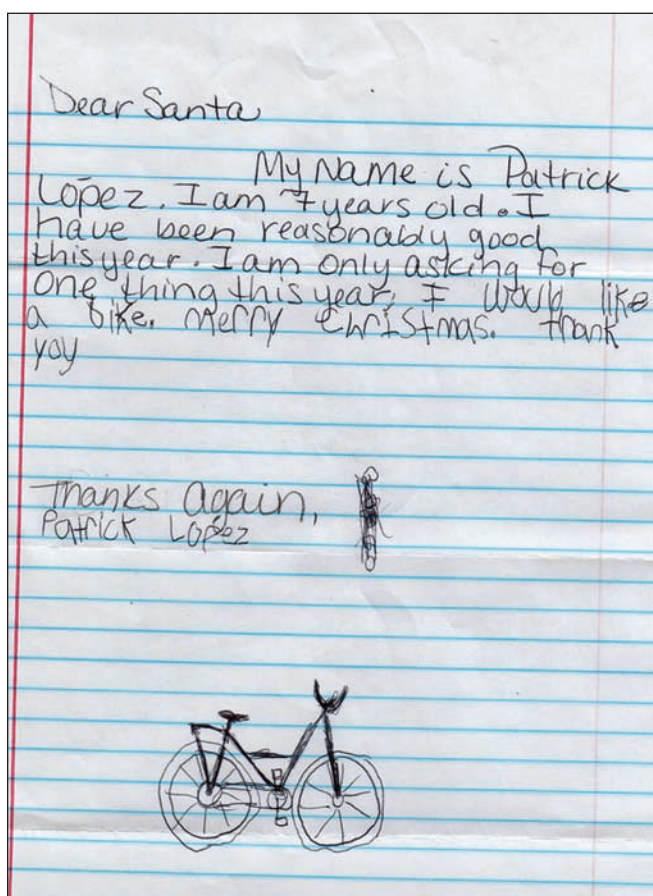 Dear Santa
My Name is Patrick
Lopez. I am 7 years old. I
have been reasonably good
this year. I am only asking for
one thing this year, I would like
a bike. Merry Christmas. thank
yoy
Thanks Again,
Patrick Lopez